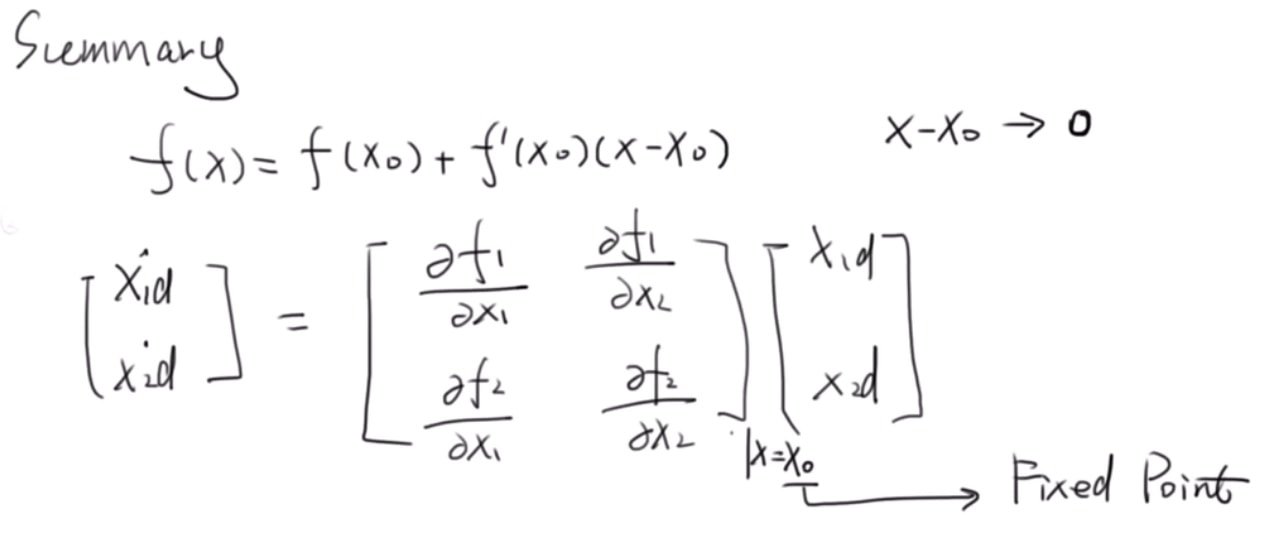 Summary
f(x) = f(x₀) + f'(x₀)(x-x₀)    x-x₀ → 0
[ẋ₁d; ẋ₂d] = [∂f₁/∂x₁ ∂f₁/∂x₂; ∂f₂/∂x₁ ∂f₂/∂x₂] |x=x₀ [x₁d; x₂d]
→ Fixed Point